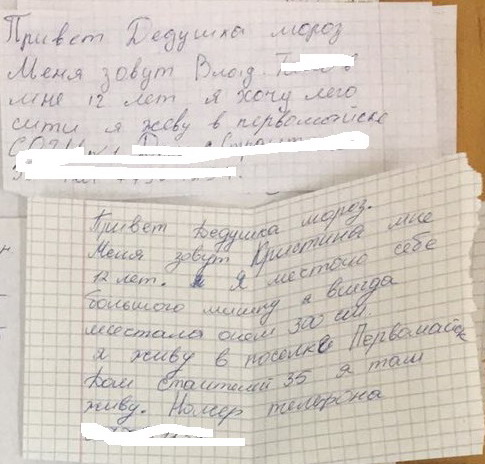 Привет Дедушка мороз
Меня зовут Влад
мне 12 лет я хочу лего
сити я живу в первомайске
Привет Дедушка мороз.
Меня зовут Кристина мне
12 лет. Я местаю себе
большого мишку я всигда
месстала онем 300 см.
я живу в поселке Первомайск
Дом 35 я там
живу. Номер телефона